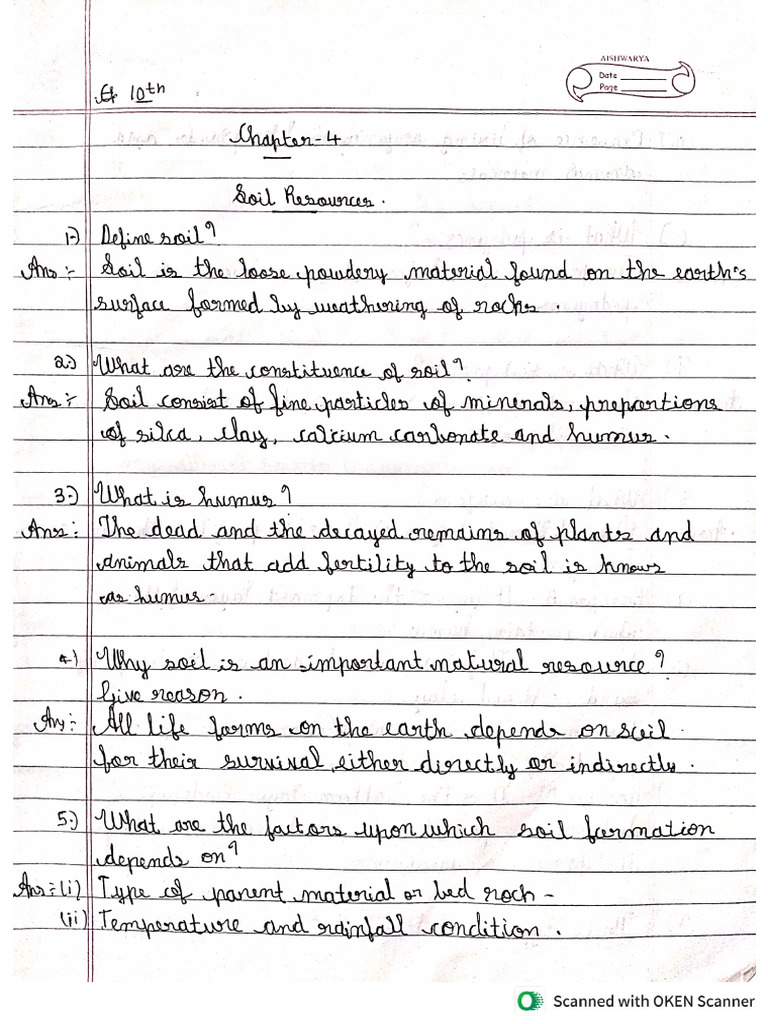 AISHWARYA
Date
Page
10th
Chapter-4
Soil Resources.
1-) Define soil?
Ans:- Soil is the loose powdery material found on the earth's
surface formed by weathering of rocks.
2:) What are the constituence of soil?
Ans:- Soil consist of fine particles of minerals, prepartions
of silca, clay, calcium carbonate and humus.
3:) What is humus?
Ans: The dead and the decayed remains of plants and
animals that add fertility to the soil is knows
as humus-
4) Why soil is an important natural resource?
Give reason.
Ans:- All life forms on the earth depends on soil
for their survival either directly or indirectly.
5:) What are the factors upon which soil formation
depends on?
Ans:- (i) Type of parent material or bed rock-
(ii) Temperature and rainfall condition.
Scanned with OKEN Scanner